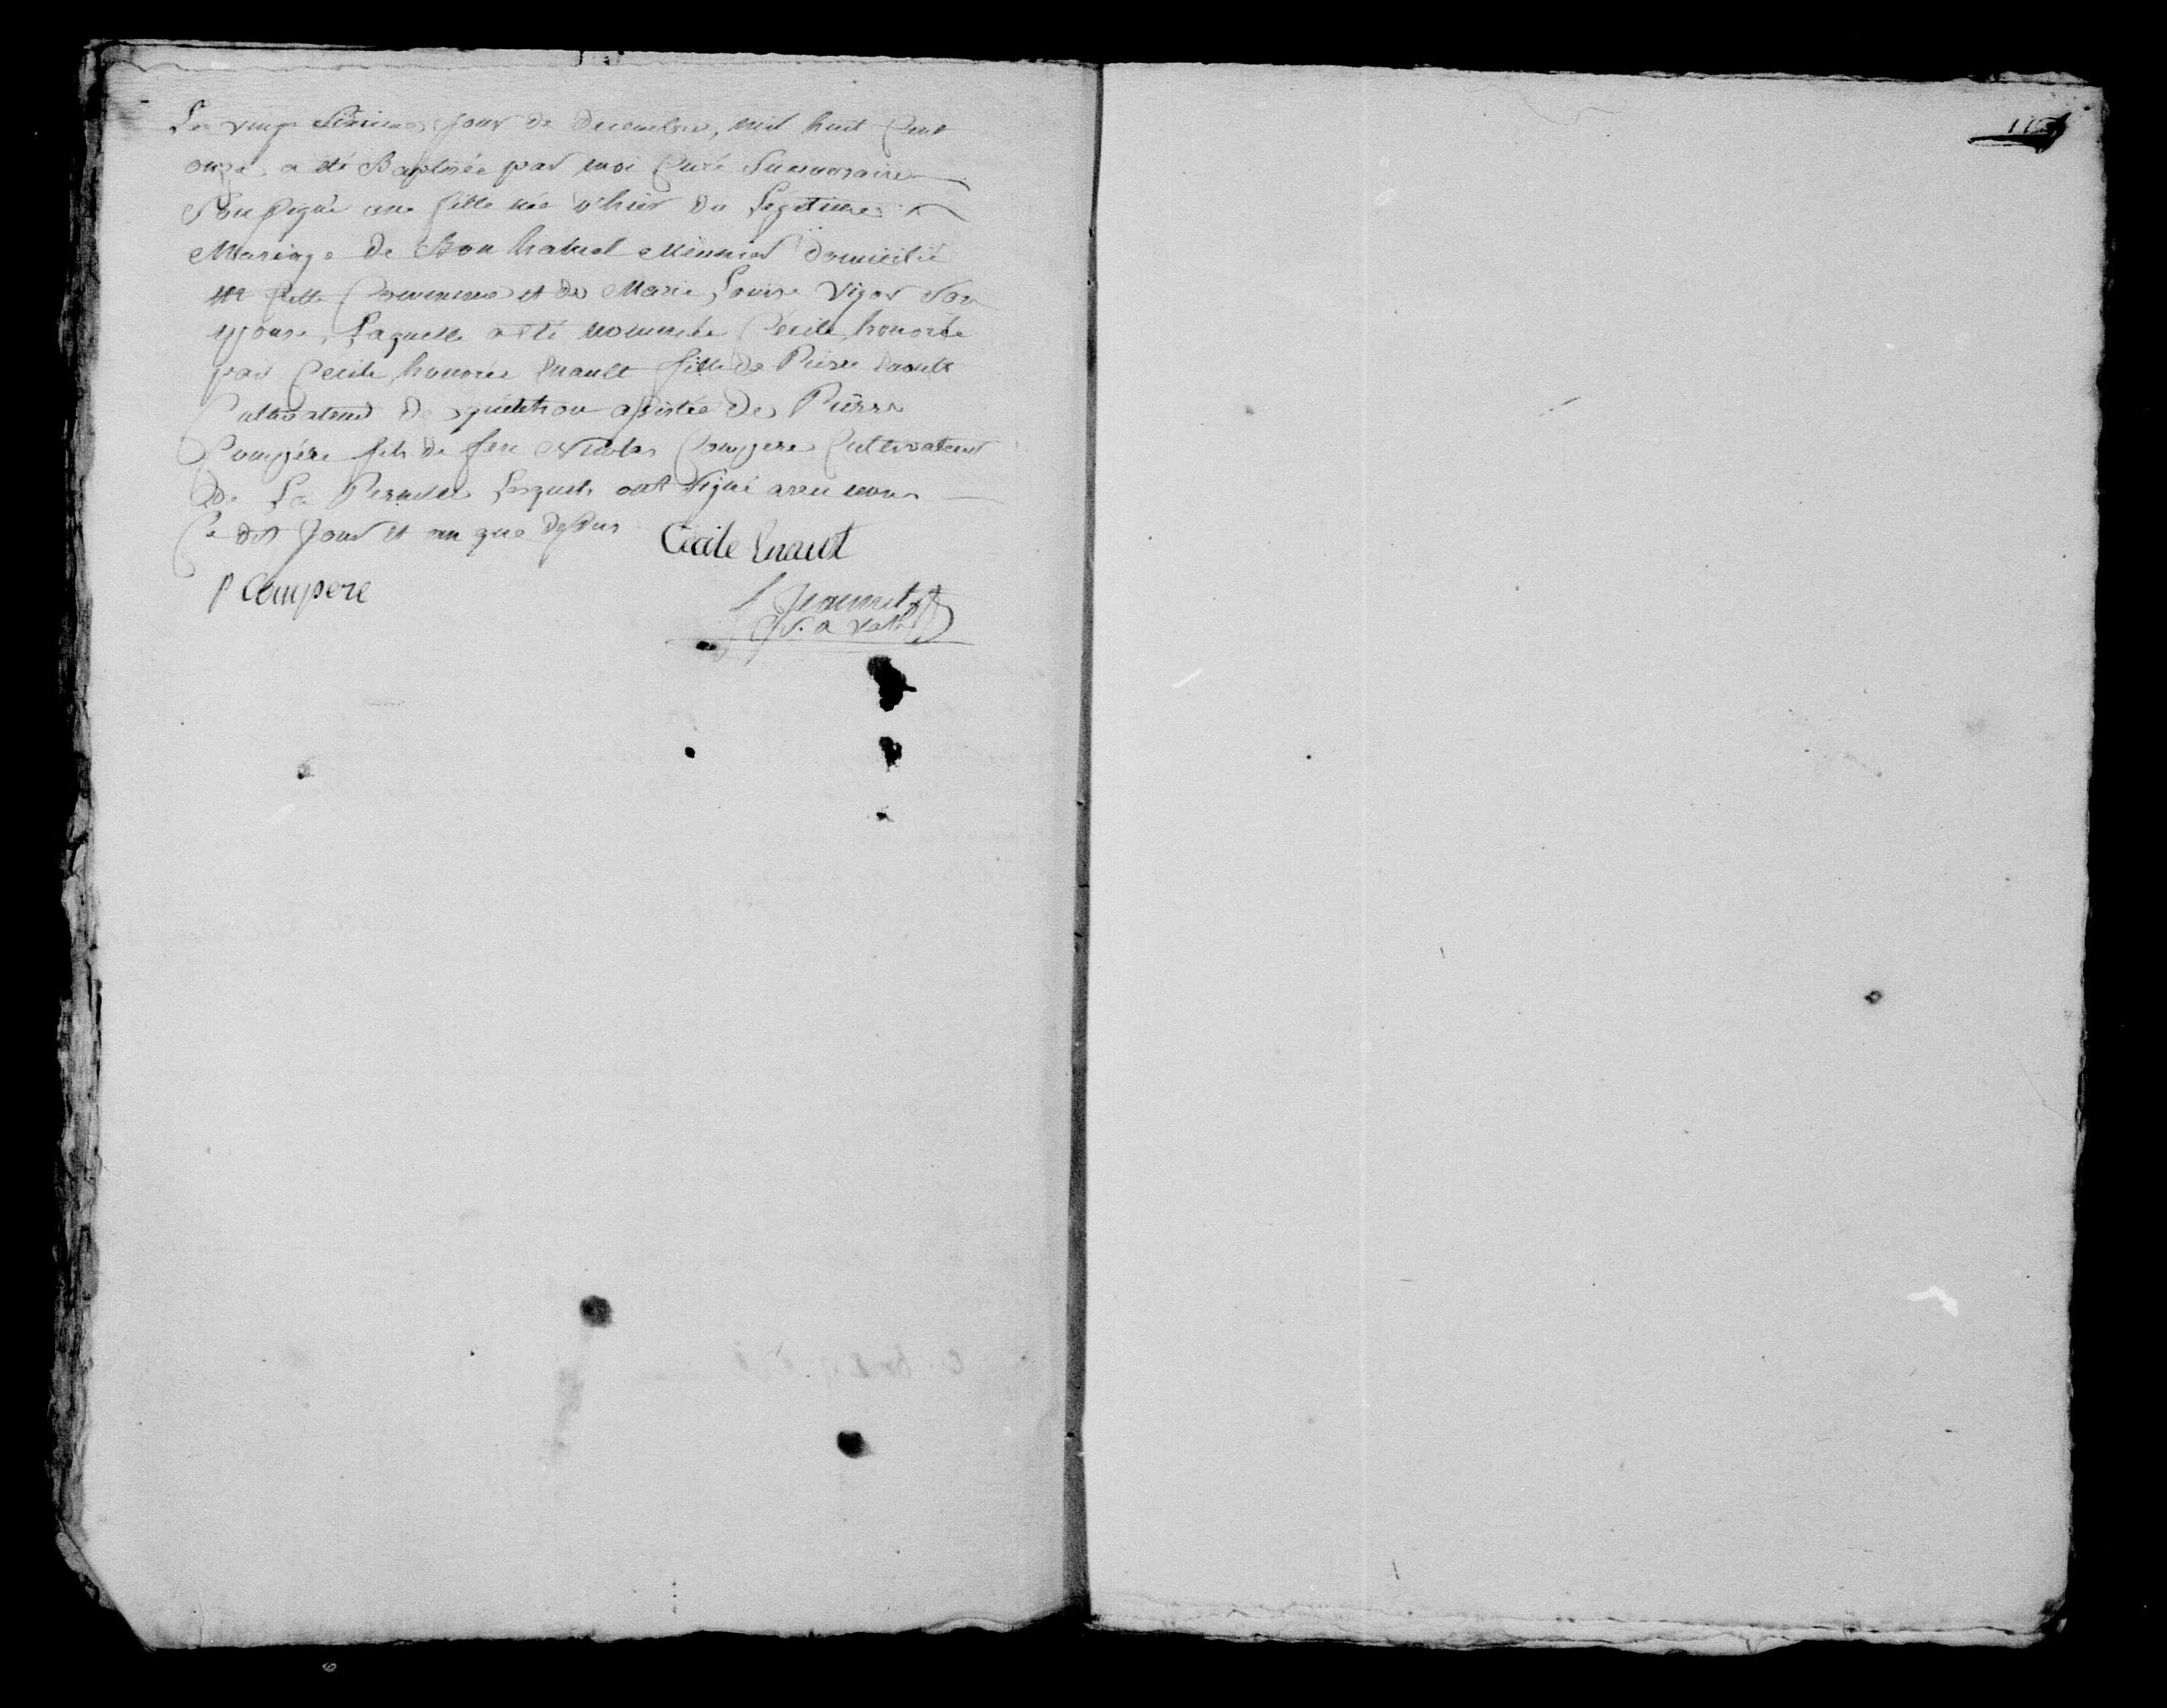 Le vingt Sixieme jour de decembre, mil huit Cent
onze a été Baptisée par moi Curé
Sousigné une fille née d'hier du Légitime
Mariage de Bon domicilié
en cette Commune et de Marie Louise Vigor Son
épouse, Laquelle a été nommée Cécile honorée
par Cécile honorée Enault fille de Pierre Enault
Cultivateur de quettehou assistée de Pierre
Compére fils de feu Nicolas Compere Cultivateur
de La Pernelle Lesquels ont Signé avec nous
Ce dit Jour et an que dessus
Cecile Enault
P Compere